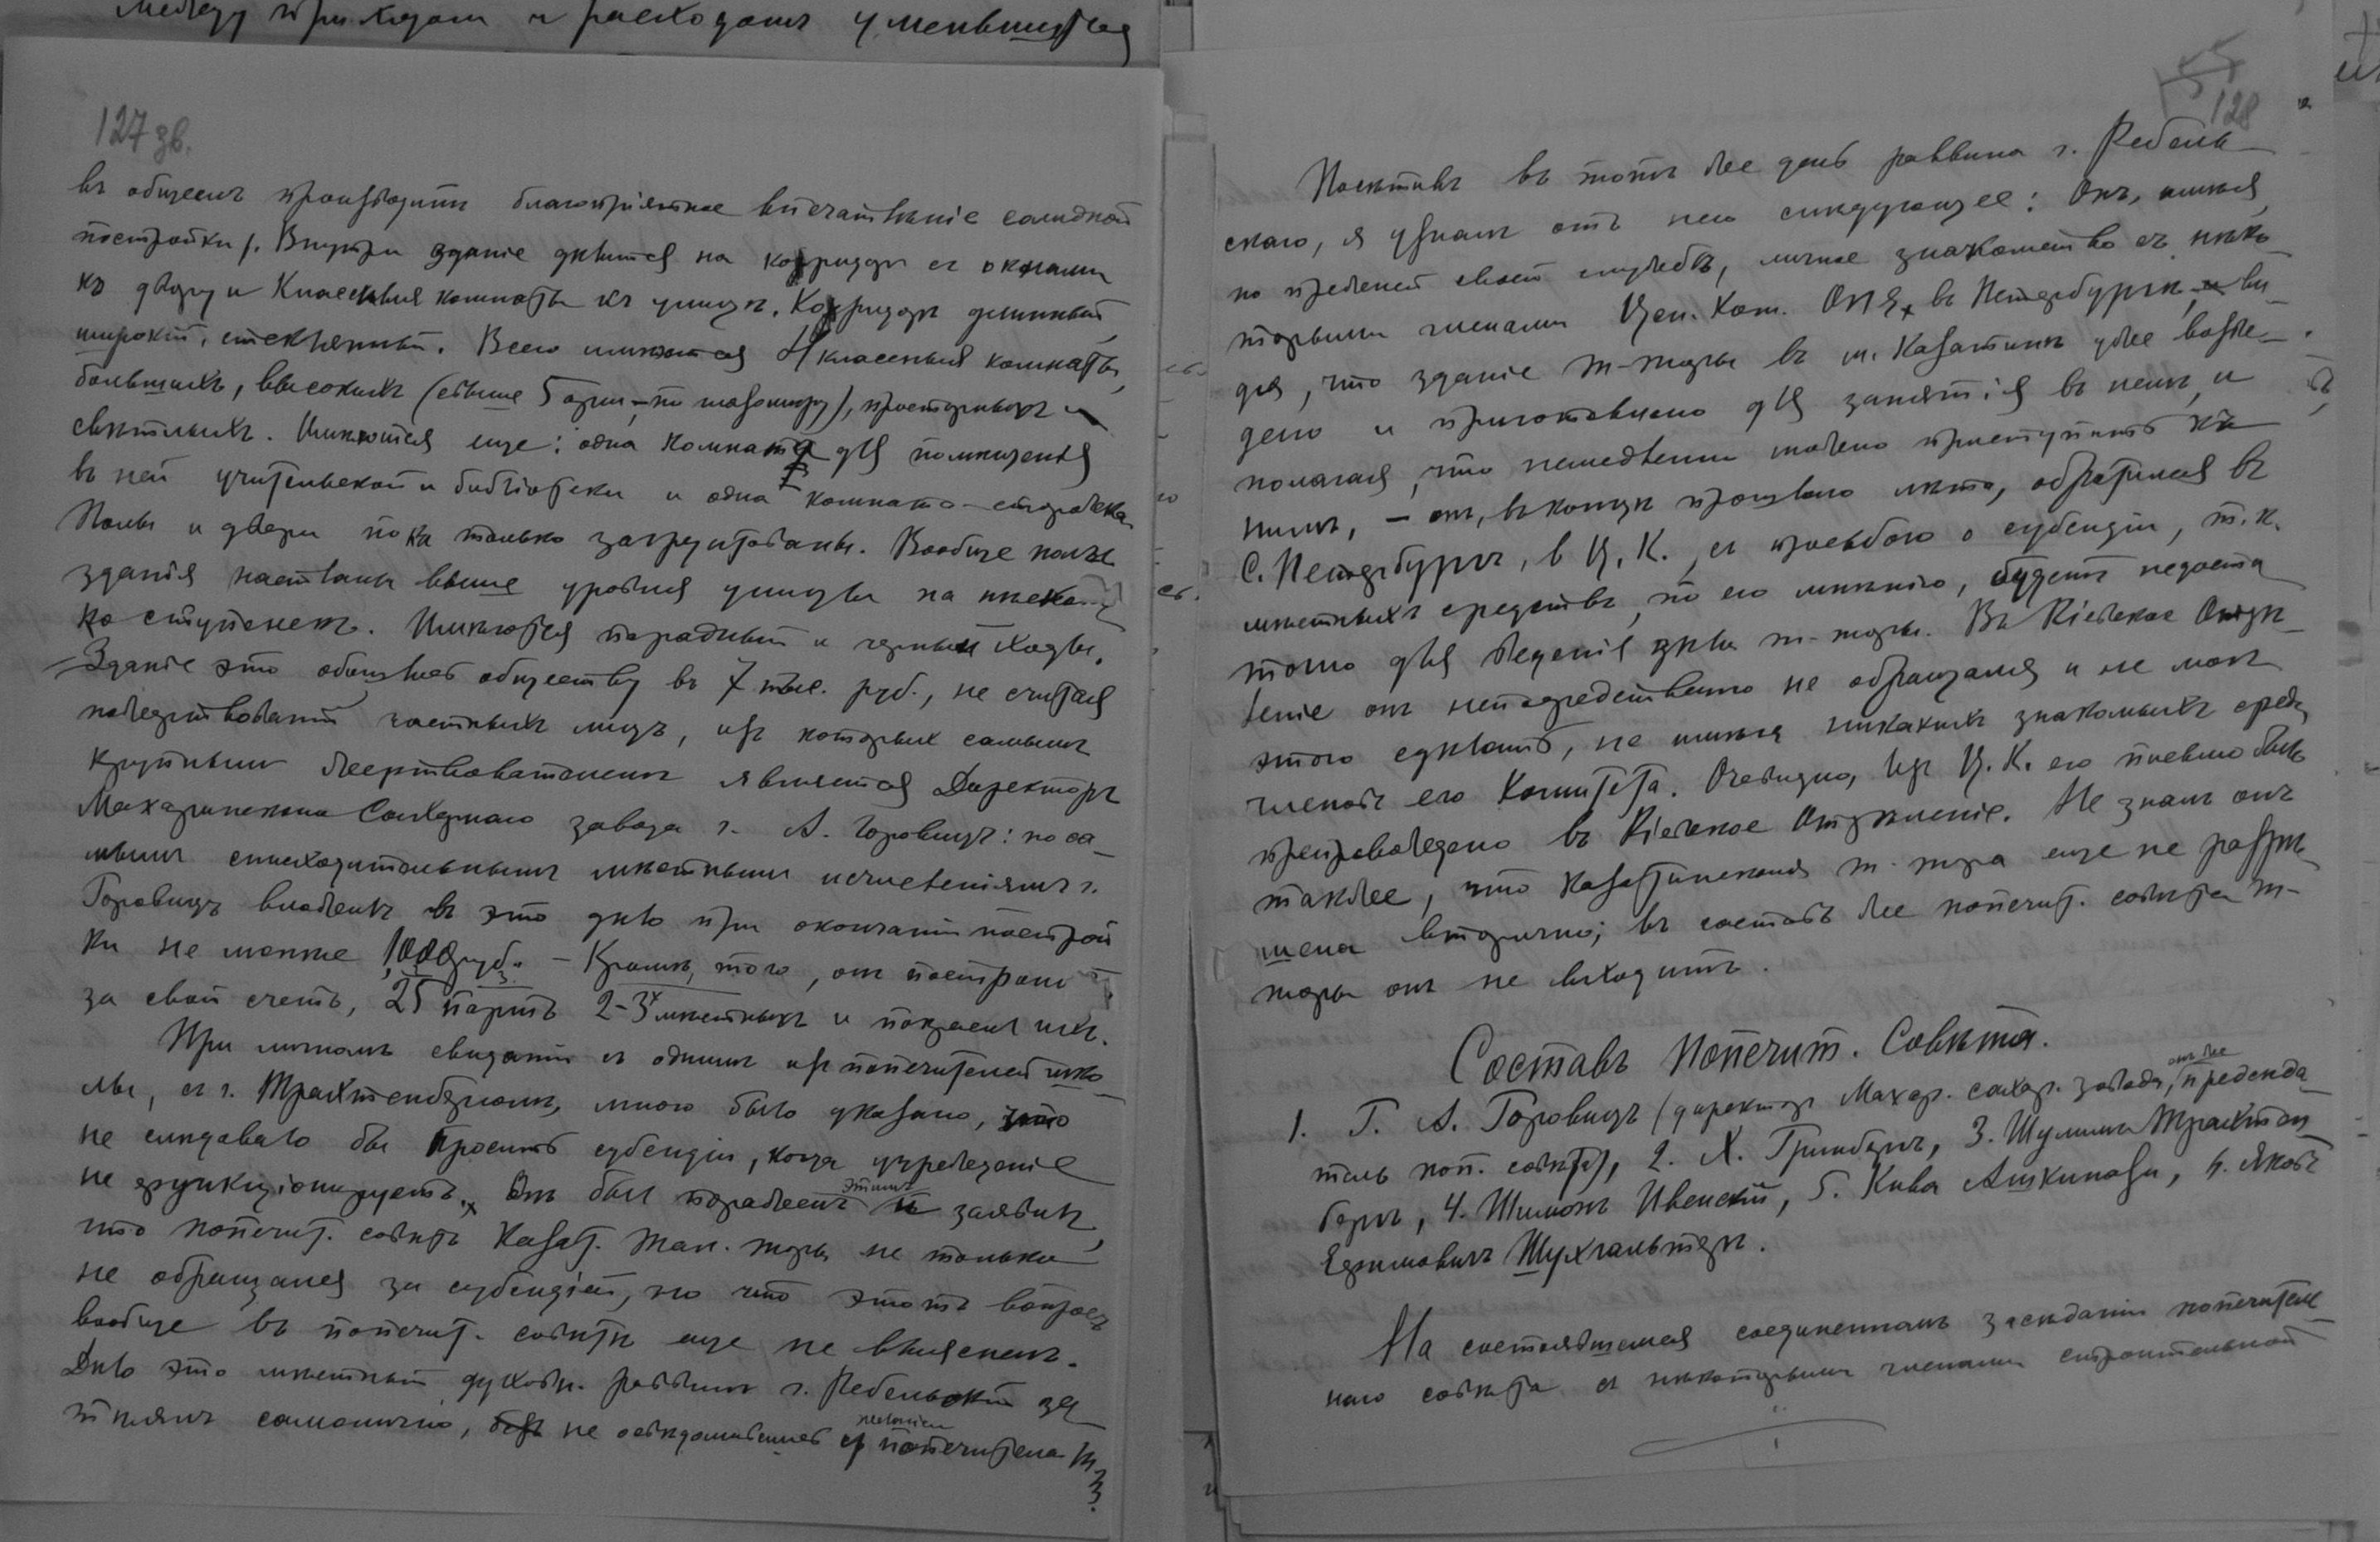 между приходом и расходомъ уменьшится
127 зв.
въ общемъ производитъ благопріятное впечатлѣніе солидной
постройки). Внутри зданіе дѣлится на корридоръ съ окнами
къ двору и классныя комнаты къ улицѣ. Корридоръ длинный,
широкій, стеклянный. Всего имѣется 4 классныя комнаты,
большихъ, высокихъ (свыше 5 арш., по), просторныхъ и
свѣтлыхъ. Имѣются еще: одна комната для помѣщенія
въ ней учительской и библіотеки и одна комната-сторожка.
Полы и двери пока только загрунтованы. Вообще полъ
зданія настланъ выше уровня улицы на нѣсколь
ко ступенекъ. Имѣются парадный и черный ходы.
Зданіе это обошлось обществу въ 7 тыс. руб., не считая
пожертвованій частныхъ лицъ, изъ которыхъ самымъ
крупнымъ жертвователемъ является Директоръ
Махаринскаго Сахарнаго завода г. А. Горовицъ: по са-
мымъ снисходительнымъ мѣстнымъ исчисленіямъ г.
Горовицъ вложитъ въ это дѣло при окончаніи построй
ки не менѣе 1000 руб. – Кромѣ того, онъ построилъ
за свой счетъ, 25 партъ 2-3х мѣстныхъ и покрасилъ ихъ.
При личномъ свиданіи съ однимъ изъ попечителей шко
лы, съ г. Трахтенбергомъ, мною было указано, что
не слѣдовало бы просить субсидіи, когда учрежденіе
не функціонируетъ. Онъ былъ пораженъ этимъ и заявилъ,
что попечит. совѣтъ Казат. тал. торы не только
не обращался за субсидіей, но что этотъ вопросъ
вообще въ попечит. совѣтѣ еще не выясненъ.
Дѣло это мѣстный духовн. раввинъ г. Ребельскій за
тѣялъ самолично, не освѣдомившись попечителя т
т.
128
Посѣтивъ въ тотъ же день раввина г. Ребель-
скаго, я узналъ отъ него слѣдующее: Онъ, имѣя,
по прежней своей службѣ, личное знакомство съ нѣко-
торыми членами Цен. Ком. ОПЕ, въ Петербургѣ, и ви-
дя, что зданіе т-торы въ м. Казатинѣ уже возве-
дено и приготовлено для занятія въ немъ, и
полагая, что немедленно можно приступить къ
нимъ, – онъ, въ концѣ прошлаго лѣта, обратился въ
С. Петербургъ, в Ц. К., съ просьбою о субсидіи, т. к.
мѣстныхъ средствъ, по его мнѣнію, будетъ недоста
точно для веденія дѣла т-торы. Въ Кіевское Отдѣ-
леніе онъ непосредственно не обращался и не могъ
этого сдѣлать, не имѣя никакихъ знакомыхъ среди
членовъ его Комитета. Очевидно, изъ Ц. К. его письмо было
препровождено въ Кіевское Отдѣленіе. Не зналъ онъ
также, что Казатинская т-тора еще не разрѣ
шена вторично; въ составъ же попечит. совѣта т-
торы онъ не входитъ.
Составъ Попечит. Совѣта.
1. Г. А. Горовицъ (директор Махар. сахар. завода, онъ же предсѣда
тель поп. совѣта), 2. Х. Гринбергъ, 3. Шулимъ Трахтен
бергъ, 4. Шимонъ Ивенскій, 5. Кива Ашкинази, 6. Яковъ
Ефимовичъ Шухгальтеръ.
На состоявшемся соединенномъ засѣданіи попечитель
наго совѣта съ нѣкоторыми членами строительной